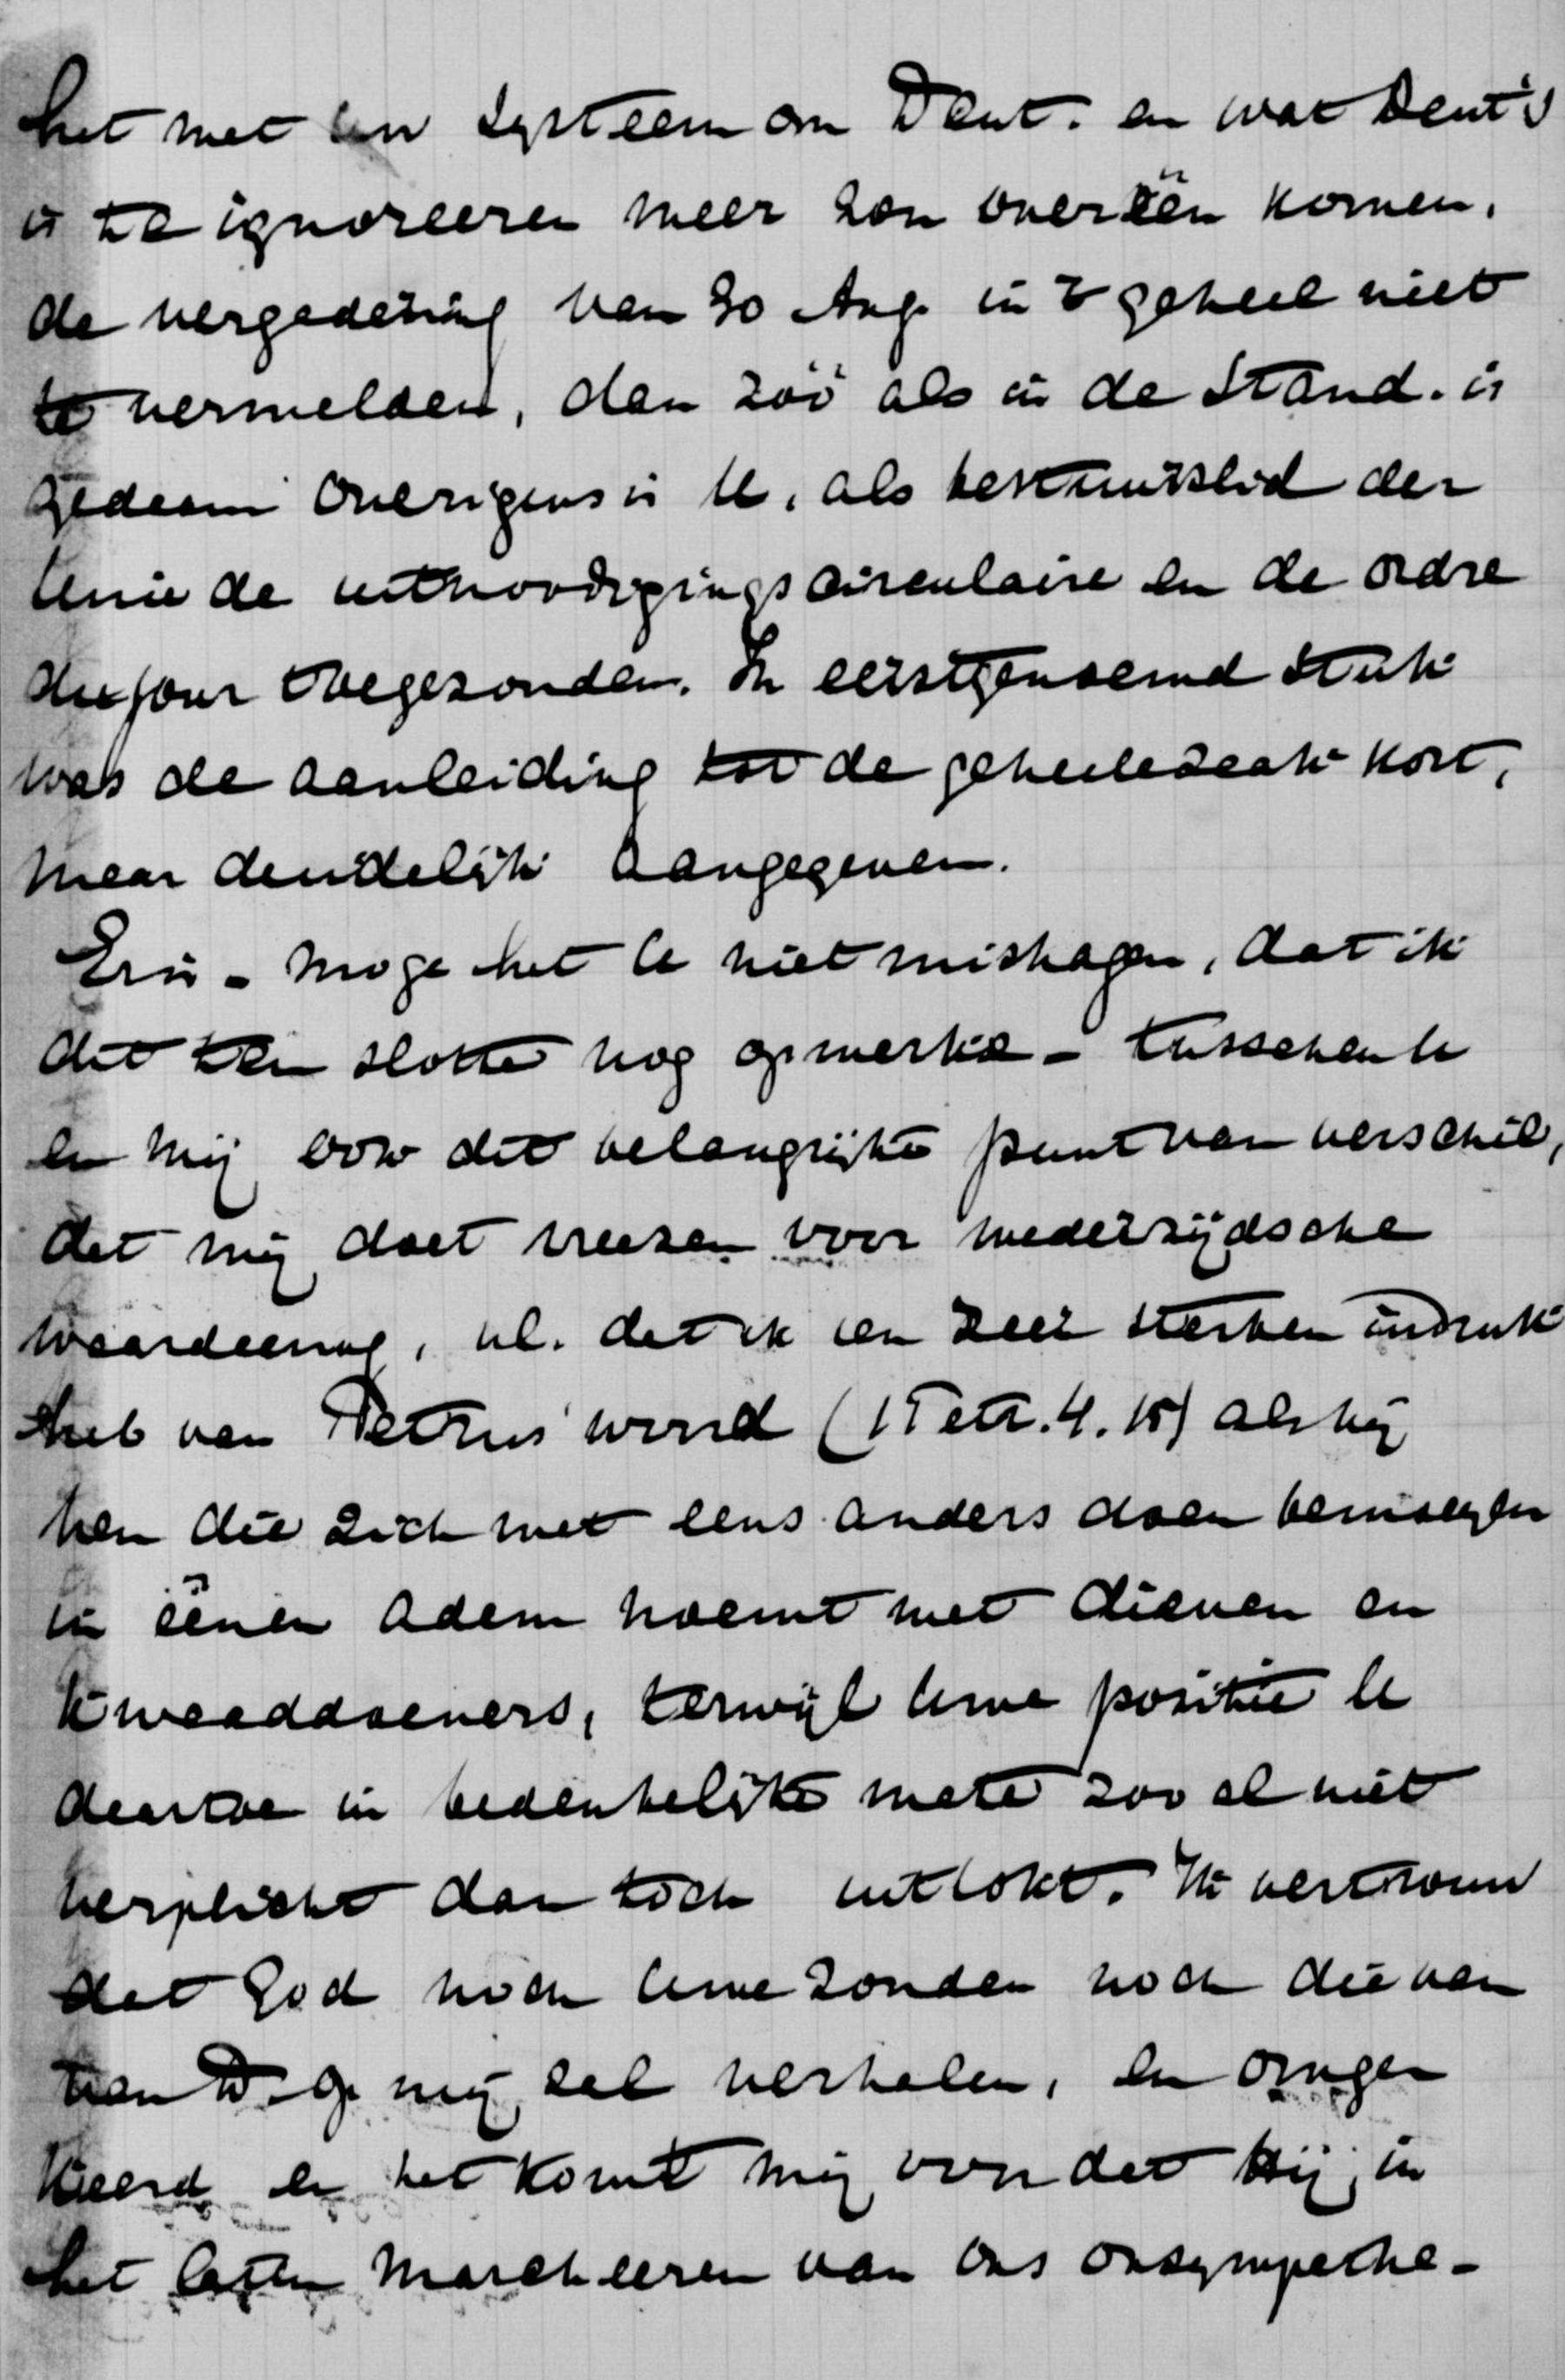 het met een systeem om Deut. en wat Deut's
is te ignoreeren meer zou overéén komen,
de vergadering van 30 Aug. in 't geheel niet
te vermelden, dan zóó als in de Stand. is
gedaan. Overigens is U, als bestuurslid der
Unie de uitnoodigingscirculaire en de ordre
du jour toegezonden. In eerstgenoemd stuk
was de aanleiding tot de geheele zaak kort,
maar duidelijk aangegeven.
Er is – moge het U niet mishagen, dat ik
dit ten slotte nog opmerke – tusschen U
en mij ook dit belangrijke punt van verschil,
dat mij doet vreezen voor wederzijdsche
waardeering, nl. dat ik een zeer sterken indruk
heb van Petrus' woord (1 Petr. 4. 15) als hij
hen die zich met eens anders doen bemoeyen
in éénen adem noemt met dieven en
kwaaddoeners, terwijl Uwe positie U
daartoe in bedenkelijke mate zoo al niet
verplicht dan toch uitlokt. Ik vertrouw
dat God noch Uwe zonden noch die van
van D. op mij zal verhalen, en omge
keerd en het komt mij voor dat Hij, in
het laten marcheeren van ons onsympathe-